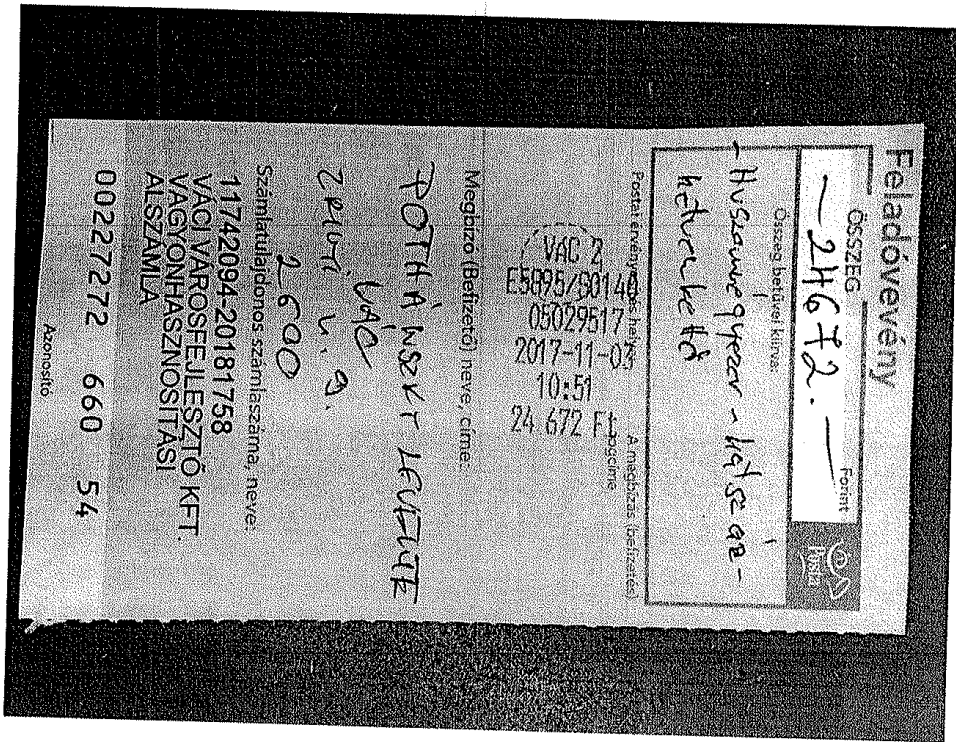 Feladóvevény
ÖSSZEG
Forint
- 24672. -
Posta
Összeg betűvel kiírva:
- Huszonnégyezer - hatszáz -
hetvenkettő
A megbízás (befizetés)
VÁC 2
E5895/S0140
05029517
2017-11-03
10:51
24 672 Ft
jogcíme
Megbízó (Befizető) neve, címe:
PÓTHÁNSZKY LEVENTE
VÁC
ZRÍNYI u. 9.
2600
Számlatulajdonos számlaszáma, neve:
11742094-20181758
VÁCI VÁROSFEJLESZTŐ KFT.
VAGYONHASZNOSÍTÁSI
ALSZÁMLA
00227272 660 54
Azonosító